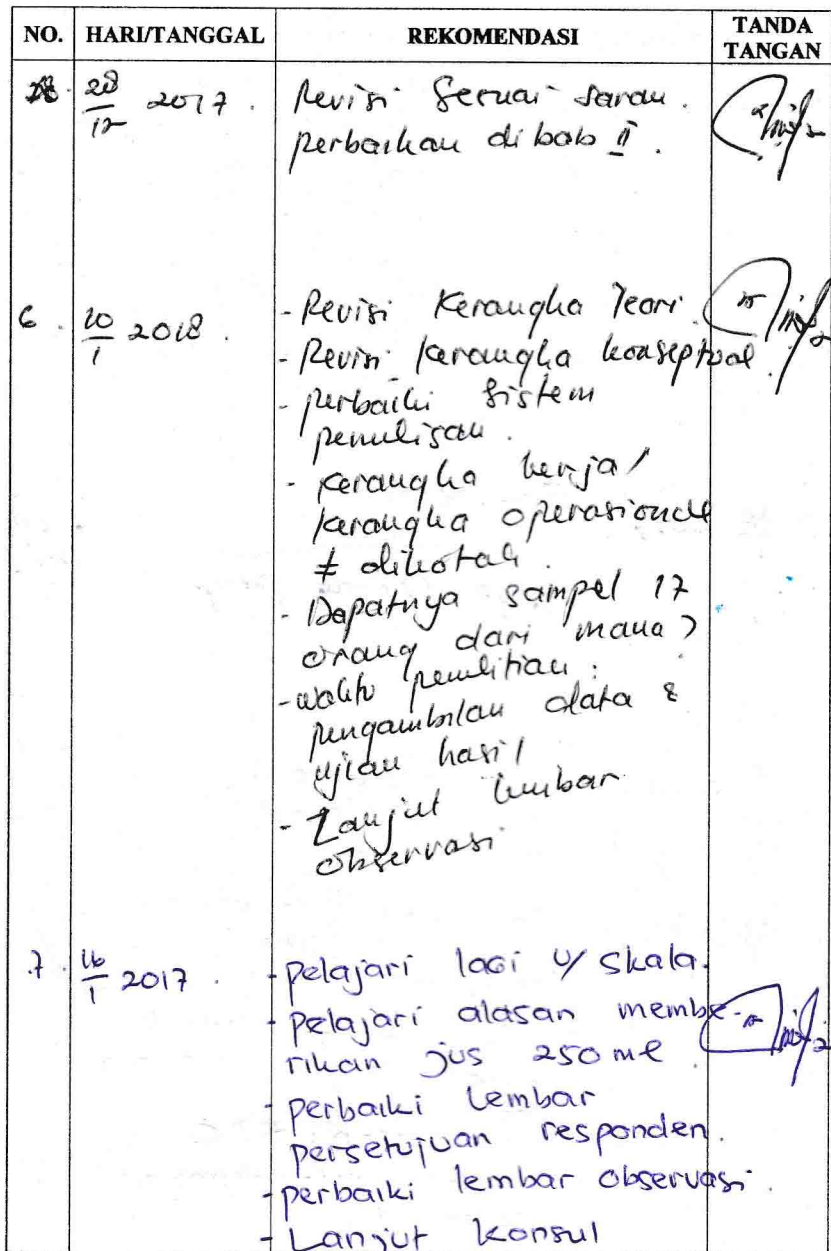 NO. HARI/TANGGAL REKOMENDASI TANDA TANGAN
28/12 2017. Revisi Sesuai saran.
perbaikan di bab II.
6. 10/1 2018. - Revisi Kerangka Teori
- Revisi kerangka konseptual.
- perbaiki sistem
penulisan.
- kerangka kerja/
kerangka operasional
≠ dikotak.
- Dapatnya sampel 17
orang dari mana?
- waktu penelitian:
pengambilan data &
ujian hasil
- Lanjut lembar
observasi
7. 16/1 2017. - pelajari lagi u/ skala.
- pelajari alasan membe-
rikan jus 250 ml.
- perbaiki lembar
persetujuan responden.
- perbaiki lembar observasi.
- Lanjut konsul